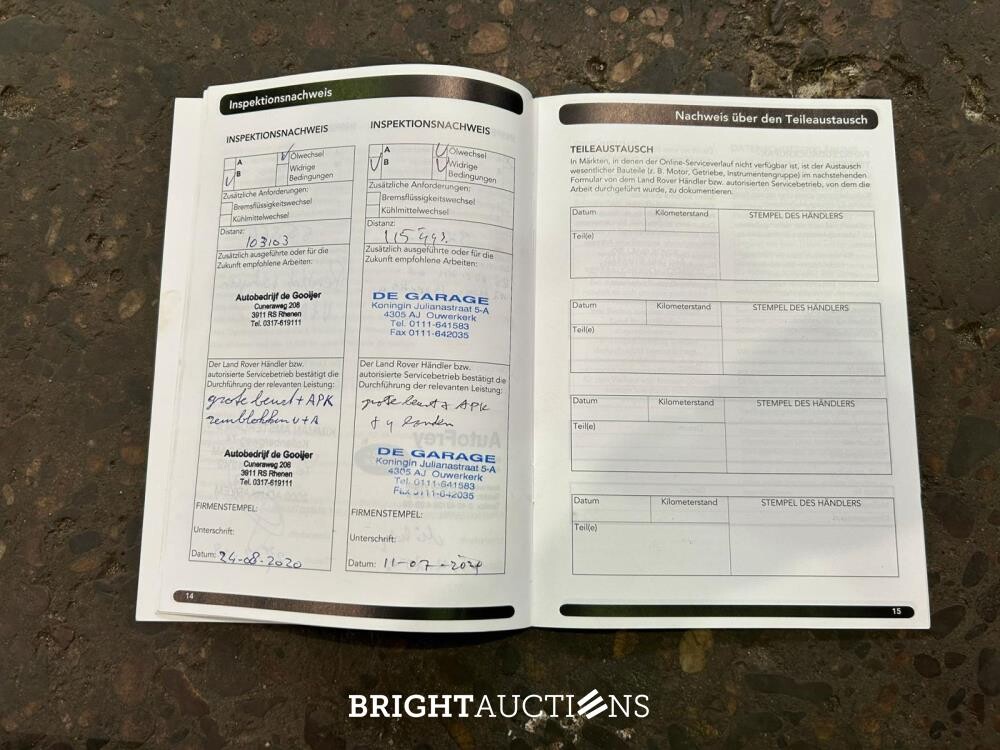 Inspektionsnachweis
INSPEKTIONSNACHWEIS
A
Ölwechsel
B
Widrige
Bedingungen
Zusätzliche Anforderungen:
Bremsflüssigkeitswechsel
Kühlmittelwechsel
Distanz:
103103
Zusätzlich ausgeführte oder für die
Zukunft empfohlene Arbeiten:
Autobedrijf de Gooijer
Cuneraweg 208
3911 RS Rhenen
Tel. 0317-619111
Der Land Rover Händler bzw.
autorisierte Servicebetrieb bestätigt die
Durchführung der relevanten Leistung:
grote beurt + APK
remblokken v+A
Autobedrijf de Gooijer
Cuneraweg 208
3911 RS Rhenen
Tel. 0317-619111
FIRMENSTEMPEL:
Unterschrift:
Datum: 24-08-2020
14
INSPEKTIONSNACHWEIS
A
Ölwechsel
B
Widrige
Bedingungen
Zusätzliche Anforderungen:
Bremsflüssigkeitswechsel
Kühlmittelwechsel
Distanz:
Zusätzlich ausgeführte oder für die
Zukunft empfohlene Arbeiten:
DE GARAGE
Koningin Julianastraat 5-A
4305 AJ Ouwerkerk
Tel. 0111-641583
Fax 0111-642035
Der Land Rover Händler bzw.
autorisierte Servicebetrieb bestätigt die
Durchführung der relevanten Leistung:
grote beurt + APK
+ 4 banden
DE GARAGE
Koningin Julianastraat 5-A
4305 AJ Ouwerkerk
Tel. 0111-641583
Fax 0111-642035
FIRMENSTEMPEL:
Unterschrift:
Datum: 11-07-
Nachweis über den Teileaustausch
TEILEAUSTAUSCH
In Märkten, in denen der Online-Serviceverlauf nicht verfügbar ist, ist der Austausch
wesentlicher Bauteile (z. B. Motor, Getriebe, Instrumentengruppe) im nachstehenden
Formular von dem Land Rover Händler bzw. autorisierten Servicebetrieb, von dem die
Arbeit durchgeführt wurde, zu dokumentieren.
Datum Kilometerstand STEMPEL DES HÄNDLERS
Teil(e)
Datum Kilometerstand STEMPEL DES HÄNDLERS
Teil(e)
Datum Kilometerstand STEMPEL DES HÄNDLERS
Teil(e)
Datum Kilometerstand STEMPEL DES HÄNDLERS
Teil(e)
15
BRIGHTAUCTIONS